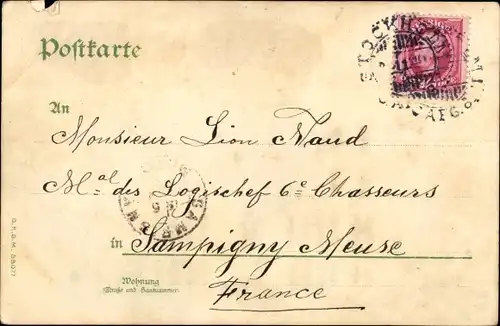 Postkarte
An
Monsieur Lion Naud
Mal des Logischef 6e Chasseurs
in Sampigny Meuse
Wohnung
(Straße und Hausnummer)
France
D.R.G.M. 88077